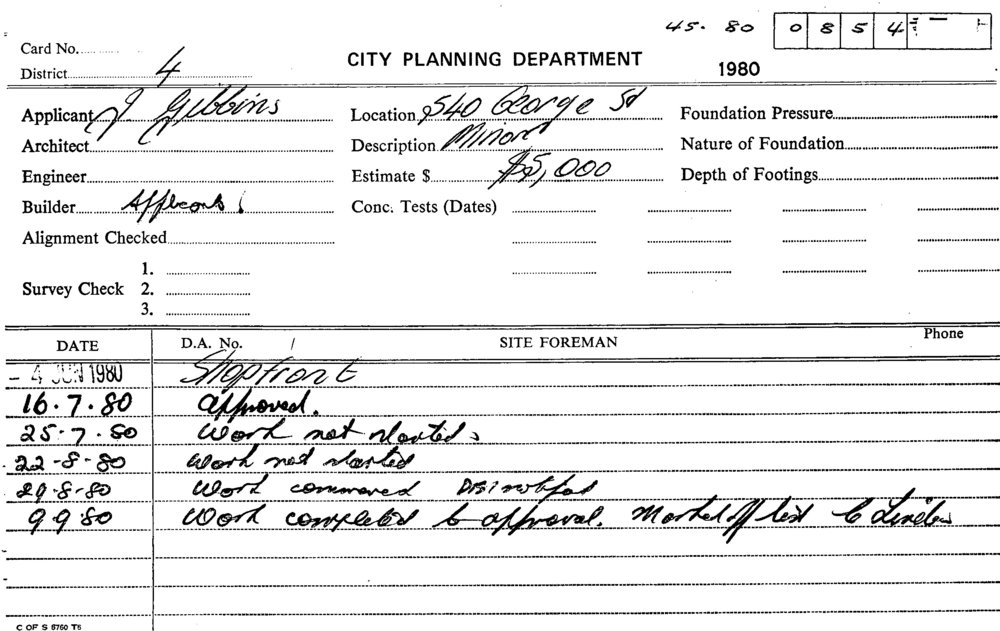 45. 80 0 8 5 4
Card No.
CITY PLANNING DEPARTMENT
1980
District 4
Applicant J. Gibbins
Location 540 George St
Foundation Pressure
Architect
Description Minor
Nature of Foundation
Engineer
Estimate $ $5,000
Depth of Footings
Builder
Conc. Tests (Dates)
Alignment Checked
1.
Survey Check 2.
3.
DATE D.A. No. / SITE FOREMAN Phone
- 4 JUN 1980 Shopfront
16.7.80 approved.
25.7.80 Work not started
22-8-80 Work not started
29-8-80 Work
9 9 80 Work completed to approval. Marked off list
C OF S 6760 T6